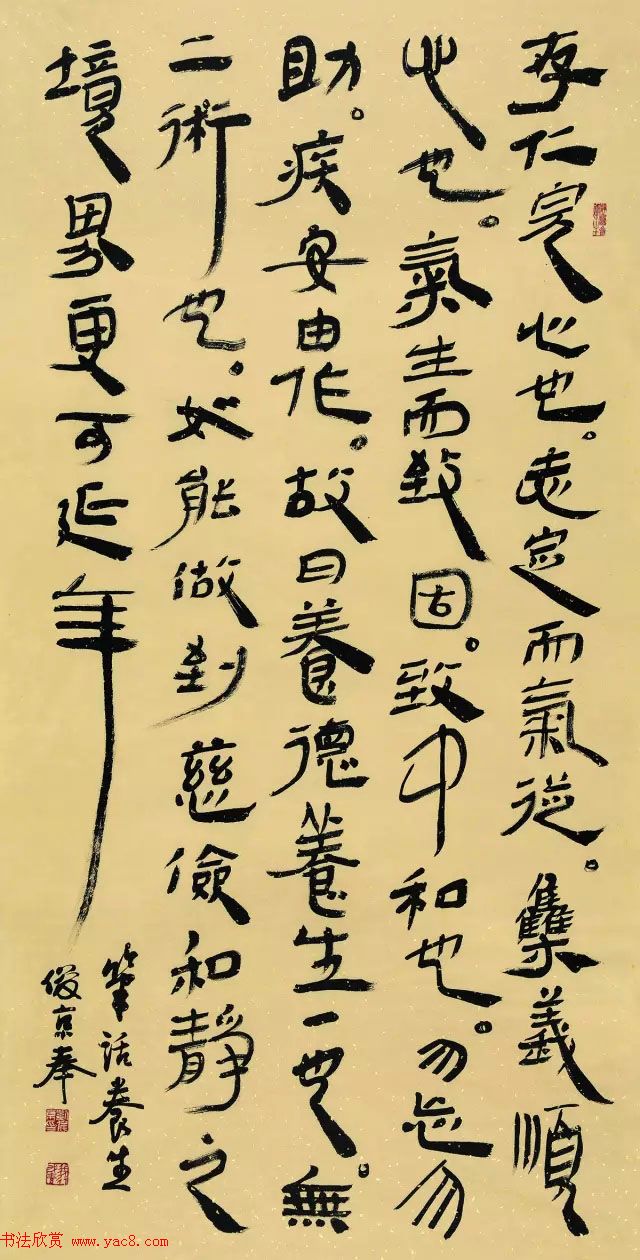 存仁完心也。志定而氣從。集義順
心也。氣生而致固。致中和也。勿忘勿
助。疾安由作。故曰養德養生一也。無
二術也。如能做到慈儉和靜之
境界更可延年
筆話養生
俊京奉
书法欣赏 www.yac8.com